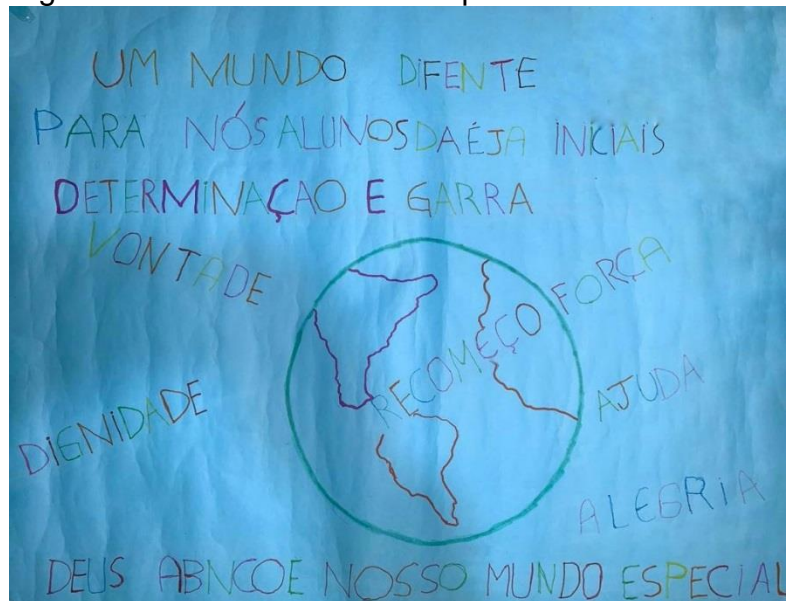 UM MUNDO DIFENTE
PARA NÓS ALUNOS DA ÉJA INICIAIS
DETERMINAÇAO E GARRA
VONTADE
RECOMEÇO FORÇA
DIGNIDADE
AJUDA
ALEGRIA
DEUS ABNCOE NOSSO MUNDO ESPECIAL